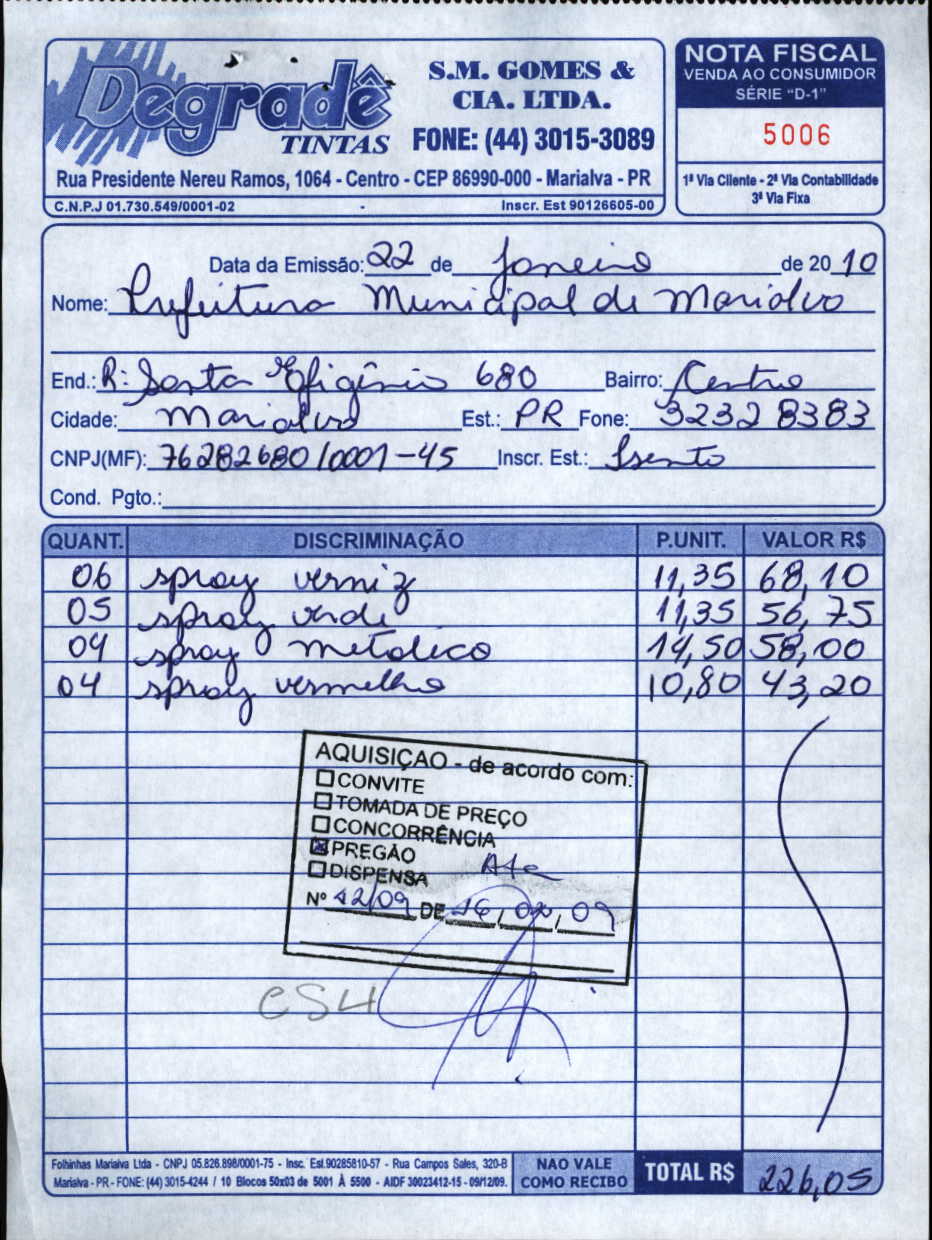 Degradê
TINTAS
S.M. GOMES &
CIA. LTDA.
FONE: (44) 3015-3089
Rua Presidente Nereu Ramos, 1064 - Centro - CEP 86990-000 - Marialva - PR
C.N.P.J 01.730.549/0001-02 Inscr. Est 90126605-00
NOTA FISCAL
VENDA AO CONSUMIDOR
SÉRIE "D-1"
5006
1ª Via Cliente - 2ª Via Contabilidade
3ª Via Fixa
Data da Emissão: 22 de Janeiro de 2010
Nome: Prefeitura Municipal de Marialva
End.: R: Santa Efigênia 680 Bairro: Centro
Cidade: Marialva Est.: PR Fone: 32328383
CNPJ(MF): 76282680/0001-45 Inscr. Est.: Isento
Cond. Pgto.:
QUANT. DISCRIMINAÇÃO P.UNIT. VALOR R$
06 spray verniz 11,35 68,10
05 spray verde 11,35 56,75
04 spray metalico 14,50 58,00
04 spray vermelho 10,80 43,20
AQUISIÇAO - de acordo com:
CONVITE
TOMADA DE PREÇO
CONCORRÊNCIA
PREGÃO Ata
DISPENSA
Nº 42/09 DE 16, , 09
CS4
Folhinhas Marialva Ltda - CNPJ 05.826.898/0001-75 - Insc. Est.90285810-57 - Rua Campos Sales, 320-B
Marialva - PR - FONE: (44) 3015-4244 / 10 Blocos 50x03 de 5001 À 5500 - AIDF 30023412-15 - 09/12/09.
NAO VALE
COMO RECIBO
TOTAL R$ 226,05